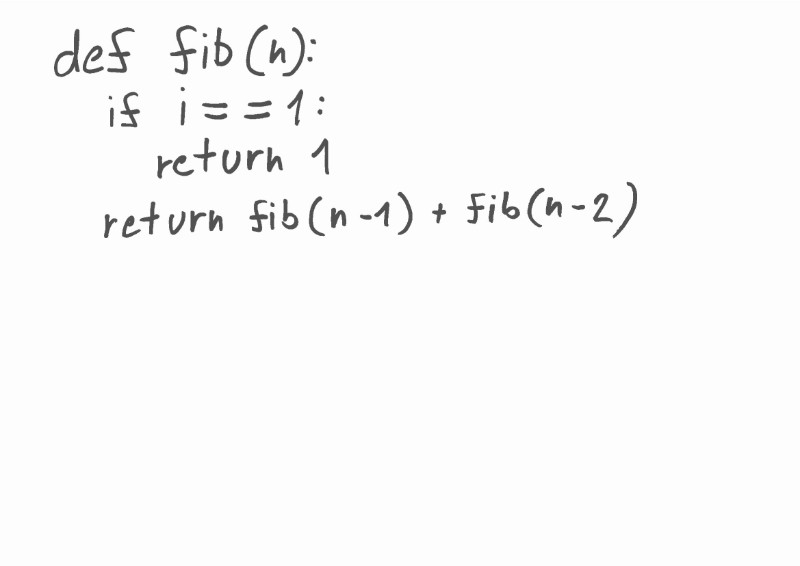 def fib(n):
if i == 1:
return 1
return fib(n-1) + fib(n-2)